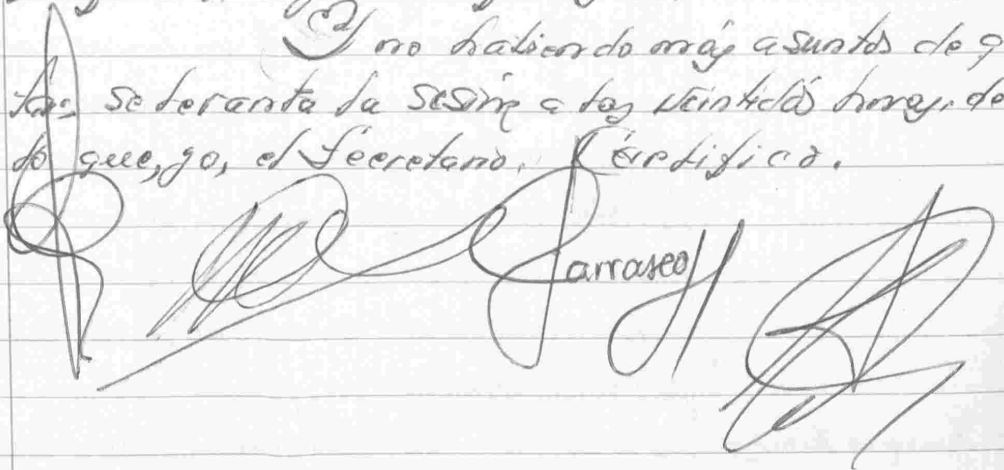 Y no habiendo más asuntos de q
tar se levanta la sesión a las veintidós horas, de
do que, yo, el Secretario, Certifico.
Carrasco